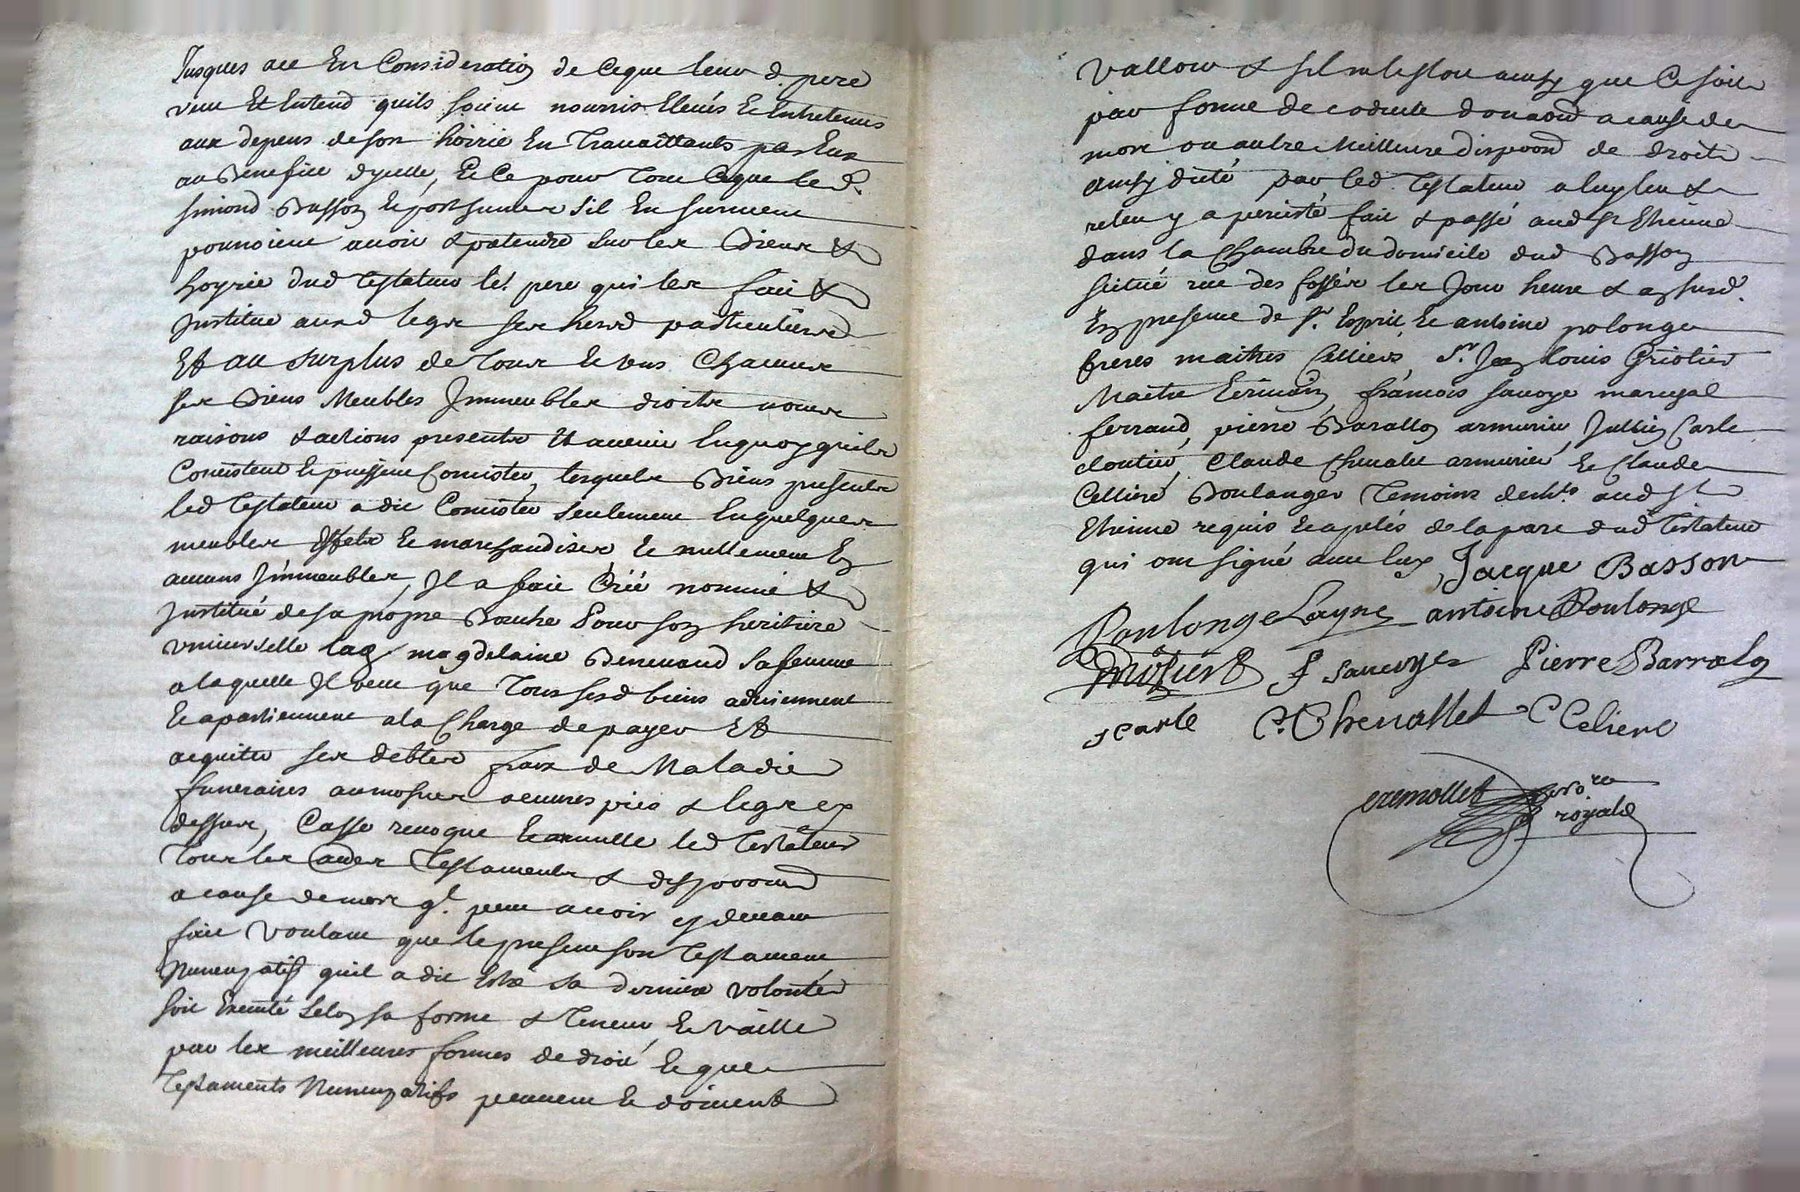 Jusques ace En Consideration de Ceque leur d. pere
veut Et Entend quils soient nourris Elevés Et Entretenus
aux depens deson hoirie En Travaillants par Eux
au Benefice dycelle, Et Ce pour Tout Ceque led.
simond Basson le posthume sil En survient
pourroient avoir & pretendre sur les Biens &
hoyrie dud Testateur le. pere qui les fait &
Institue aud legs ses herd. particulierd
Et au surplus de Tous Et uns Chacuns
ses Biens Meubles Immeubles droits noms
raisons & actions presents Et avenir Enquoy quils
Consistent Et puissent Consister, lesquels Biens presents
led Testateur a dit Consister seulement En quelques
meubles Effets Et marchandises Et nullement En
aucuns Immeubles, Il a fait Créé nommé &
Institué desa propre Bouche Pour son heritiere
universelle lad. magdelaine Benevand Sa femme
a laquelle Il veut que Tous sesd biens adviennent
Et apartiennent ala Charge de payer Et
acquiter ses debtes fraix de Maladie
funeraires aumosnes oeuvres pies & legs cy
dessus, Casse revoque Et annulle led Testateur
Tous les autres Testaments & disposond
a cause demort ql. peut avoir cy devant
fait voulant que le present son Testament
Nuncupatif quil a dit Estre sa derniere volonté
soit Executé Selon sa forme & Teneur, Et vaille
par les meilleures formes de droit Et que
Testaments Nuncupatifs peuvent Et doivent
valloir & sil ne le steu ainsy que Ce soit
par forme de codicille donaond acause de
mort ou autre Meilleure disposond de droit
ainsy dicté par led. Testateur a luy leu &
releu y a percisté fait & passé aud St Etienne
dans la Chambre du domicile dud Basson
scitué rue des fossés les Jour heure & an susd.
En presence de Sr. Esprit, Et antoine polonge
freres maitres Celliers, Sr Jean Louis Griotier
Maitre Ecrivain, françois savoye marechal
ferrand, pierre Barallon armurier, Jullien Carle
cloutier, Claude Chevalet armurier, Et Claude
Celliere Boulanger Temoins demts. aud St
Etienne requis Et apelés de la part dud Testateur
qui ont signé avec Eux Jacque Basson
Poulonge Layne antoine Poulonge
Griotier F Sauvoye Pierre Barralon
J Carle C. Chevallet C Celiere
cremollet notre
royale